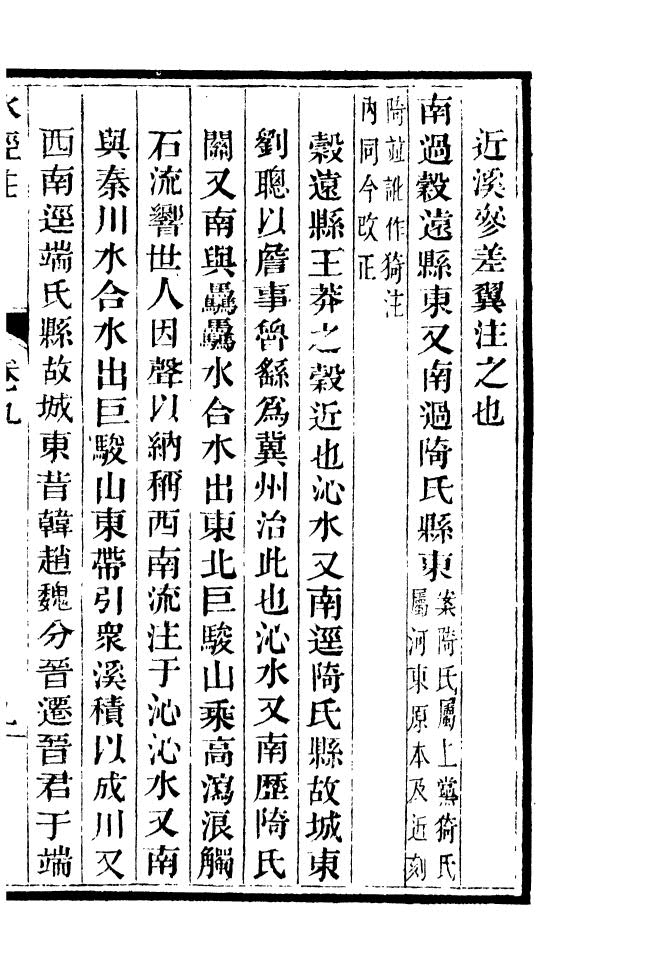 近溪參差翼注之也
南過穀遠縣東又南過陭氏縣東案陭氏屬上黨猗氏
屬河東原本及近刻
陭並訛作猗注
內同今改正
穀遠縣王莽之穀近也沁水又南逕陭氏縣故城東
劉聰以詹事魯繇為冀州治此也沁水又南歷陭氏
關又南與驫驫水合水出東北巨駿山乘高瀉浪觸
石流響世人因聲以納稱西南流注于沁沁水又南
與秦川水合水出巨駿山東帶引衆溪積以成川又
西南逕端氏縣故城東昔韓趙魏分晉遷晉君于端
水經注
卷九